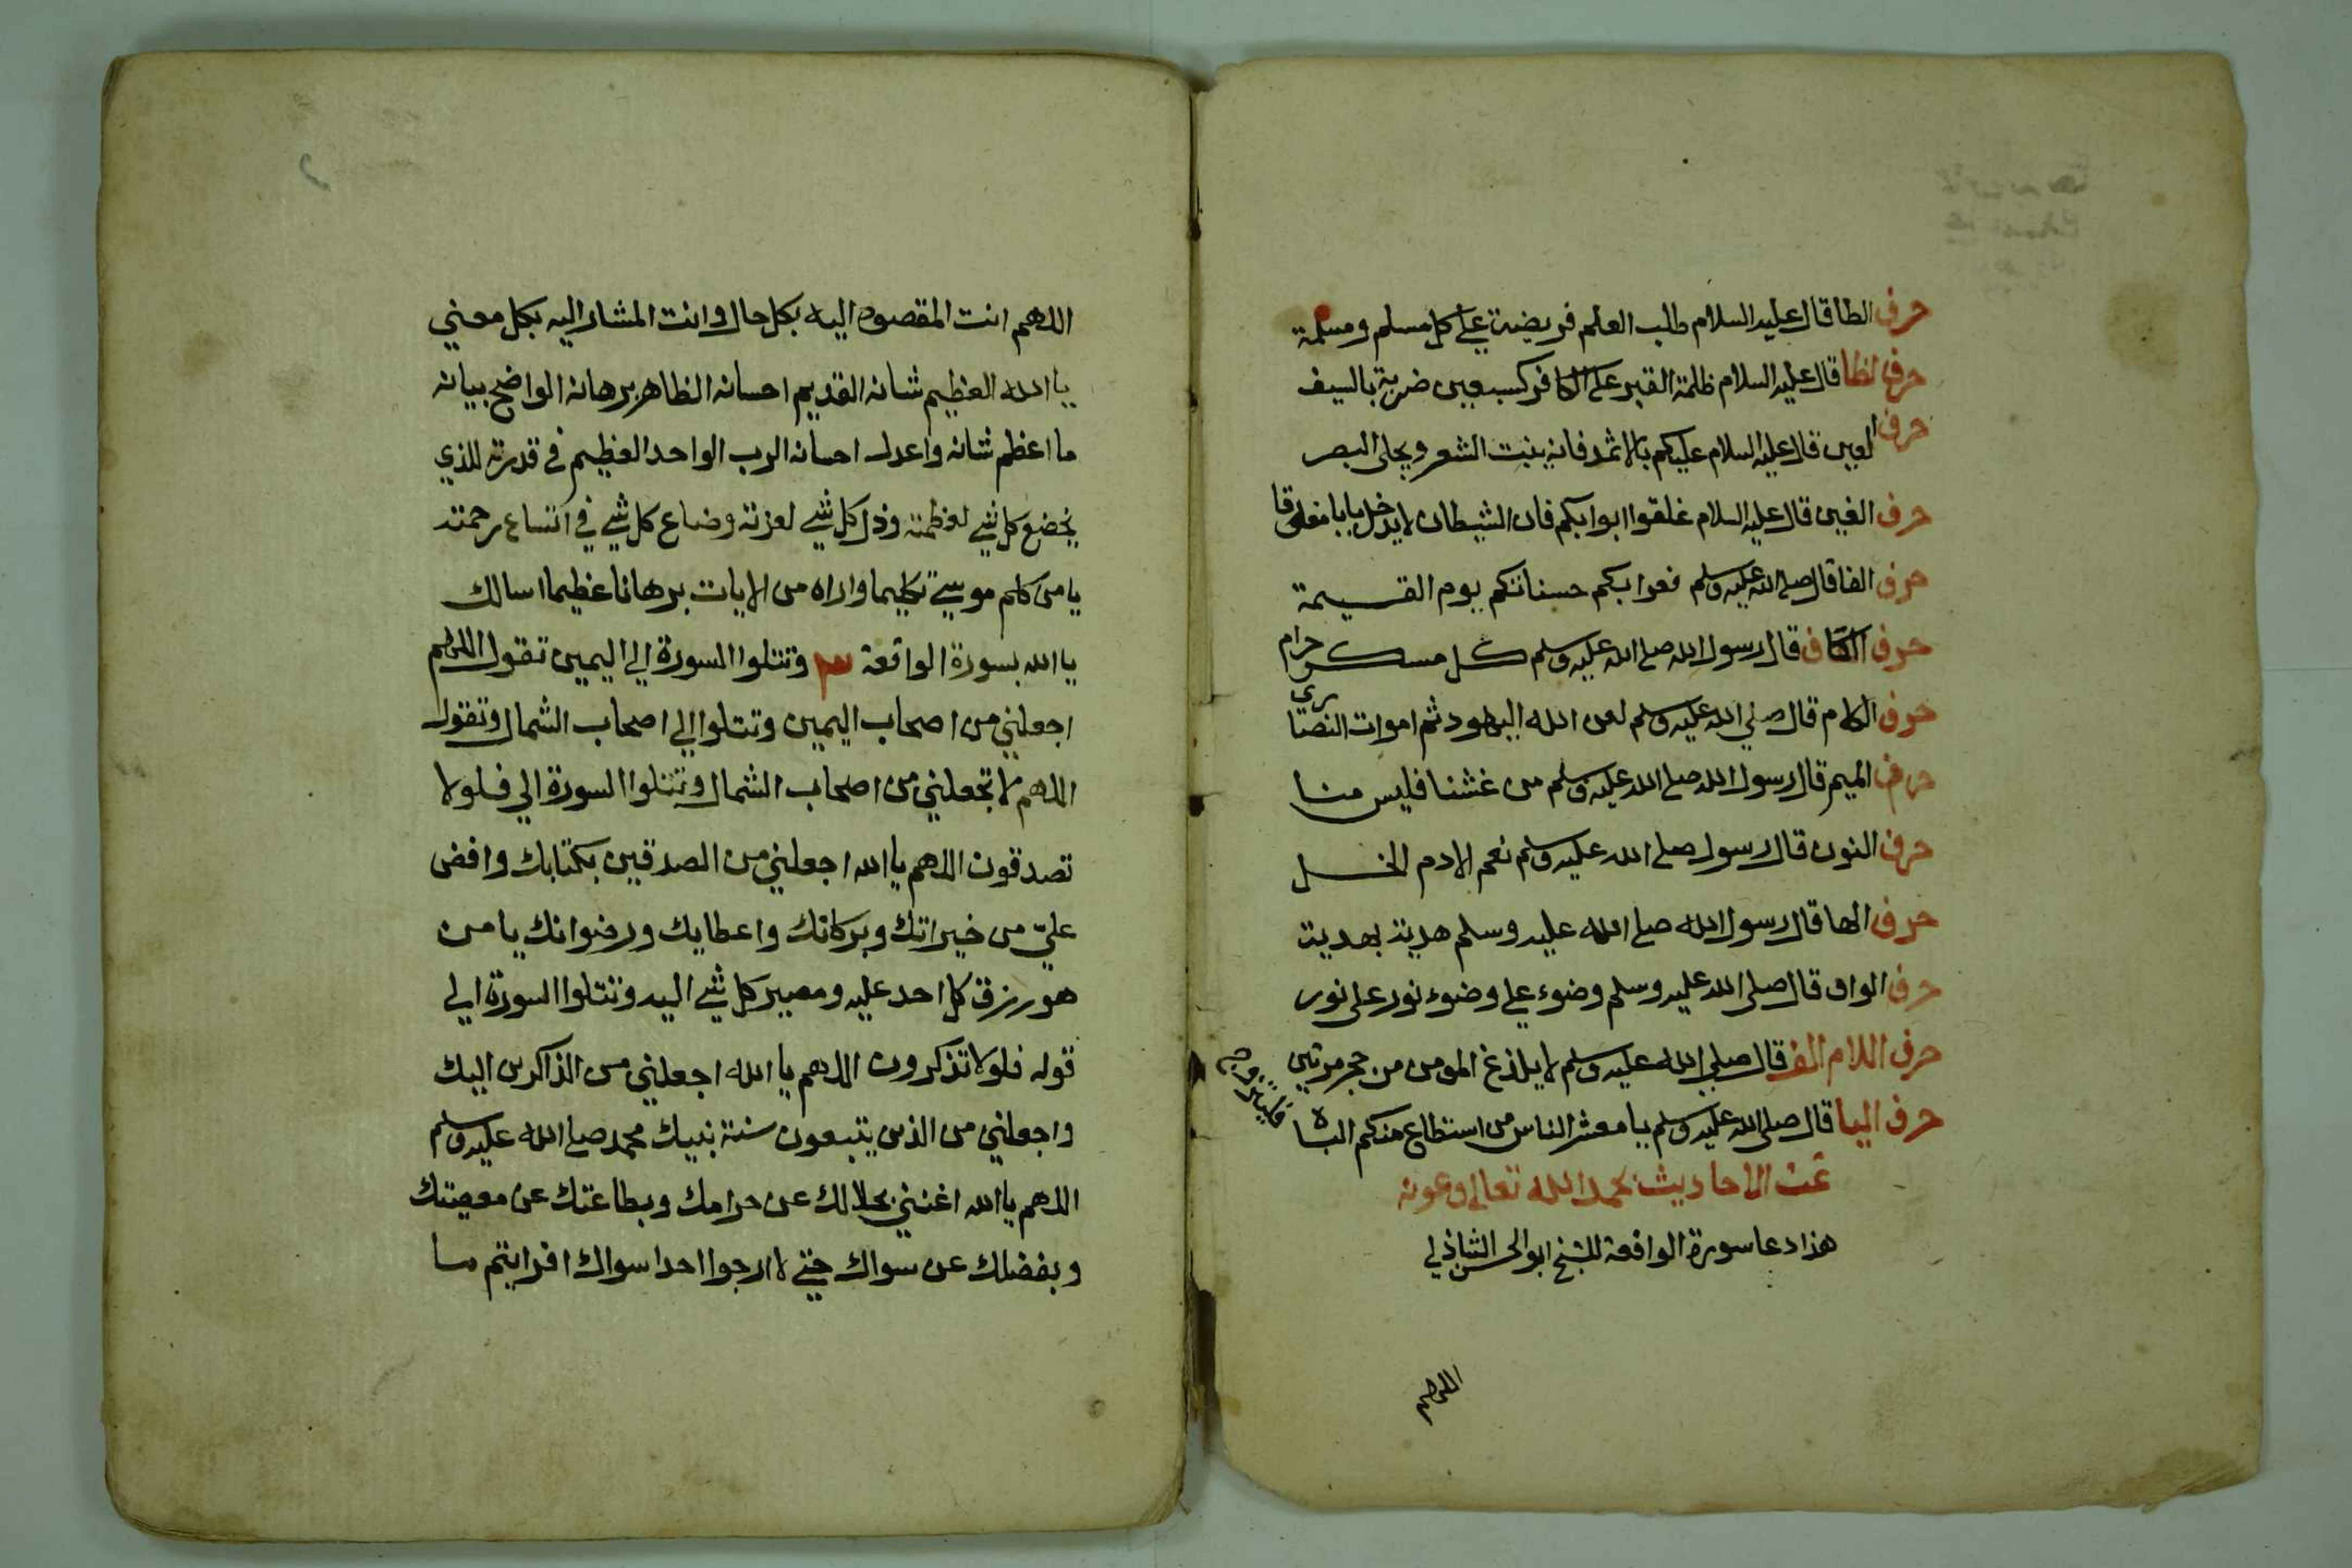 حرف الطا قال عليه السلام طلب العلم فريضة علي كل مسلم ومسلمة
حرف الظا قال عليه السلام ظلمة القبر علي الكافر كسبعين ضربة بالسيف
حرف العين قال عليه السلام عليكم بالاثمد فانه ينبت الشعر ويجلي البصر
حرف الغين قال عليه السلام غلقوا ابوابكم فان الشيطان لا يدخل بابا مغلوقا
حرف الفا قال صلي الله عليه وسلم بكم حسناتكم يوم القسيمة
حرف الكاف قال رسول الله صلي الله عليه وسلم كل مسكر حرام
حرف الام قال صلي الله عليه وسلم لعن الله اليهود ثم اموات النصارى
حرف الميم قال رسول الله صلي الله عليه وسلم من غشنا فليس منا
حرف النون قال رسول صلي الله عليه وسلم نعم الادم الخل
حرف الها قال رسول الله صلي الله عليه وسلم هدية بهدية
حرف الواو قال صلي الله عليه وسلم وضوء علي وضوء نور علي نور
حرف اللام الف قال صلي الله عليه وسلم لا يلذغ المومن من جحر مرتين
حرف اليا قال صلي الله عليه وسلم يا معشر الناس من استطاع منكم الباه
فليتزوج
تمت الاحاديث بحمد الله تعالي وعونه
هذا دعا سورة الواقعة للشيخ ابو الحسن الشاذلي
اللهم
اللهم انت المقصود اليه بكل حال وانت المشار اليه بكل معني
يا الله العظيم شانه القديم احسانه الظاهر برهانه الواضح بيانه
ما اعظم شانه واعدل احسانه الرب الواحد العظيم في قدرته للذي
يخضع كل شي لعظمته وذل كل شي لعزته وضاع كل شي في اتساع رحمته
يا من كلم موسي تكليما واراه من الايات برهانا عظيما اسالك
يا الله بسورة الواقعة وتتلوا السورة الي اليمين تقول اللهم
اجعلني من اصحاب اليمين وتتلوا الي اصحاب الشمال وتقول
اللهم لا تجعلني من اصحاب الشمال وتتلوا السورة الي فلولا
تصدقون اللهم يا الله اجعلني من الصدقين بكتابك وافض
علي من خيراتك وبركاتك واعطايك ورضوانك يا من
هو رزق كل احد عليه ومصير كل شي اليه وتتلوا السورة الي
قوله فلولا تذكرون اللهم يا الله اجعلني من الذاكرين اليك
واجعلني من الذين يتبعون سنة نبيك محمد صلي الله عليه وسلم
اللهم يا الله اغنني بحلالك عن حرامك وبطاعتك عن معصيتك
وبفضلك عن سواك حتي لا ارجوا احدا سواك افرايتم ما